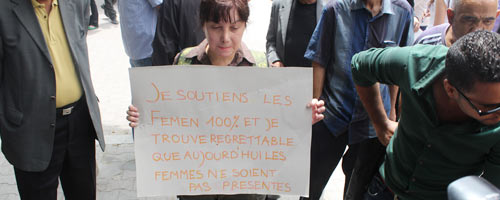 JE SOUTIENS LES
FEMEN 100% ET JE
TROUVE REGRETTABLE
QUE AUJOURD'HUI LES
FEMMES NE SOIENT
PAS PRESENTES